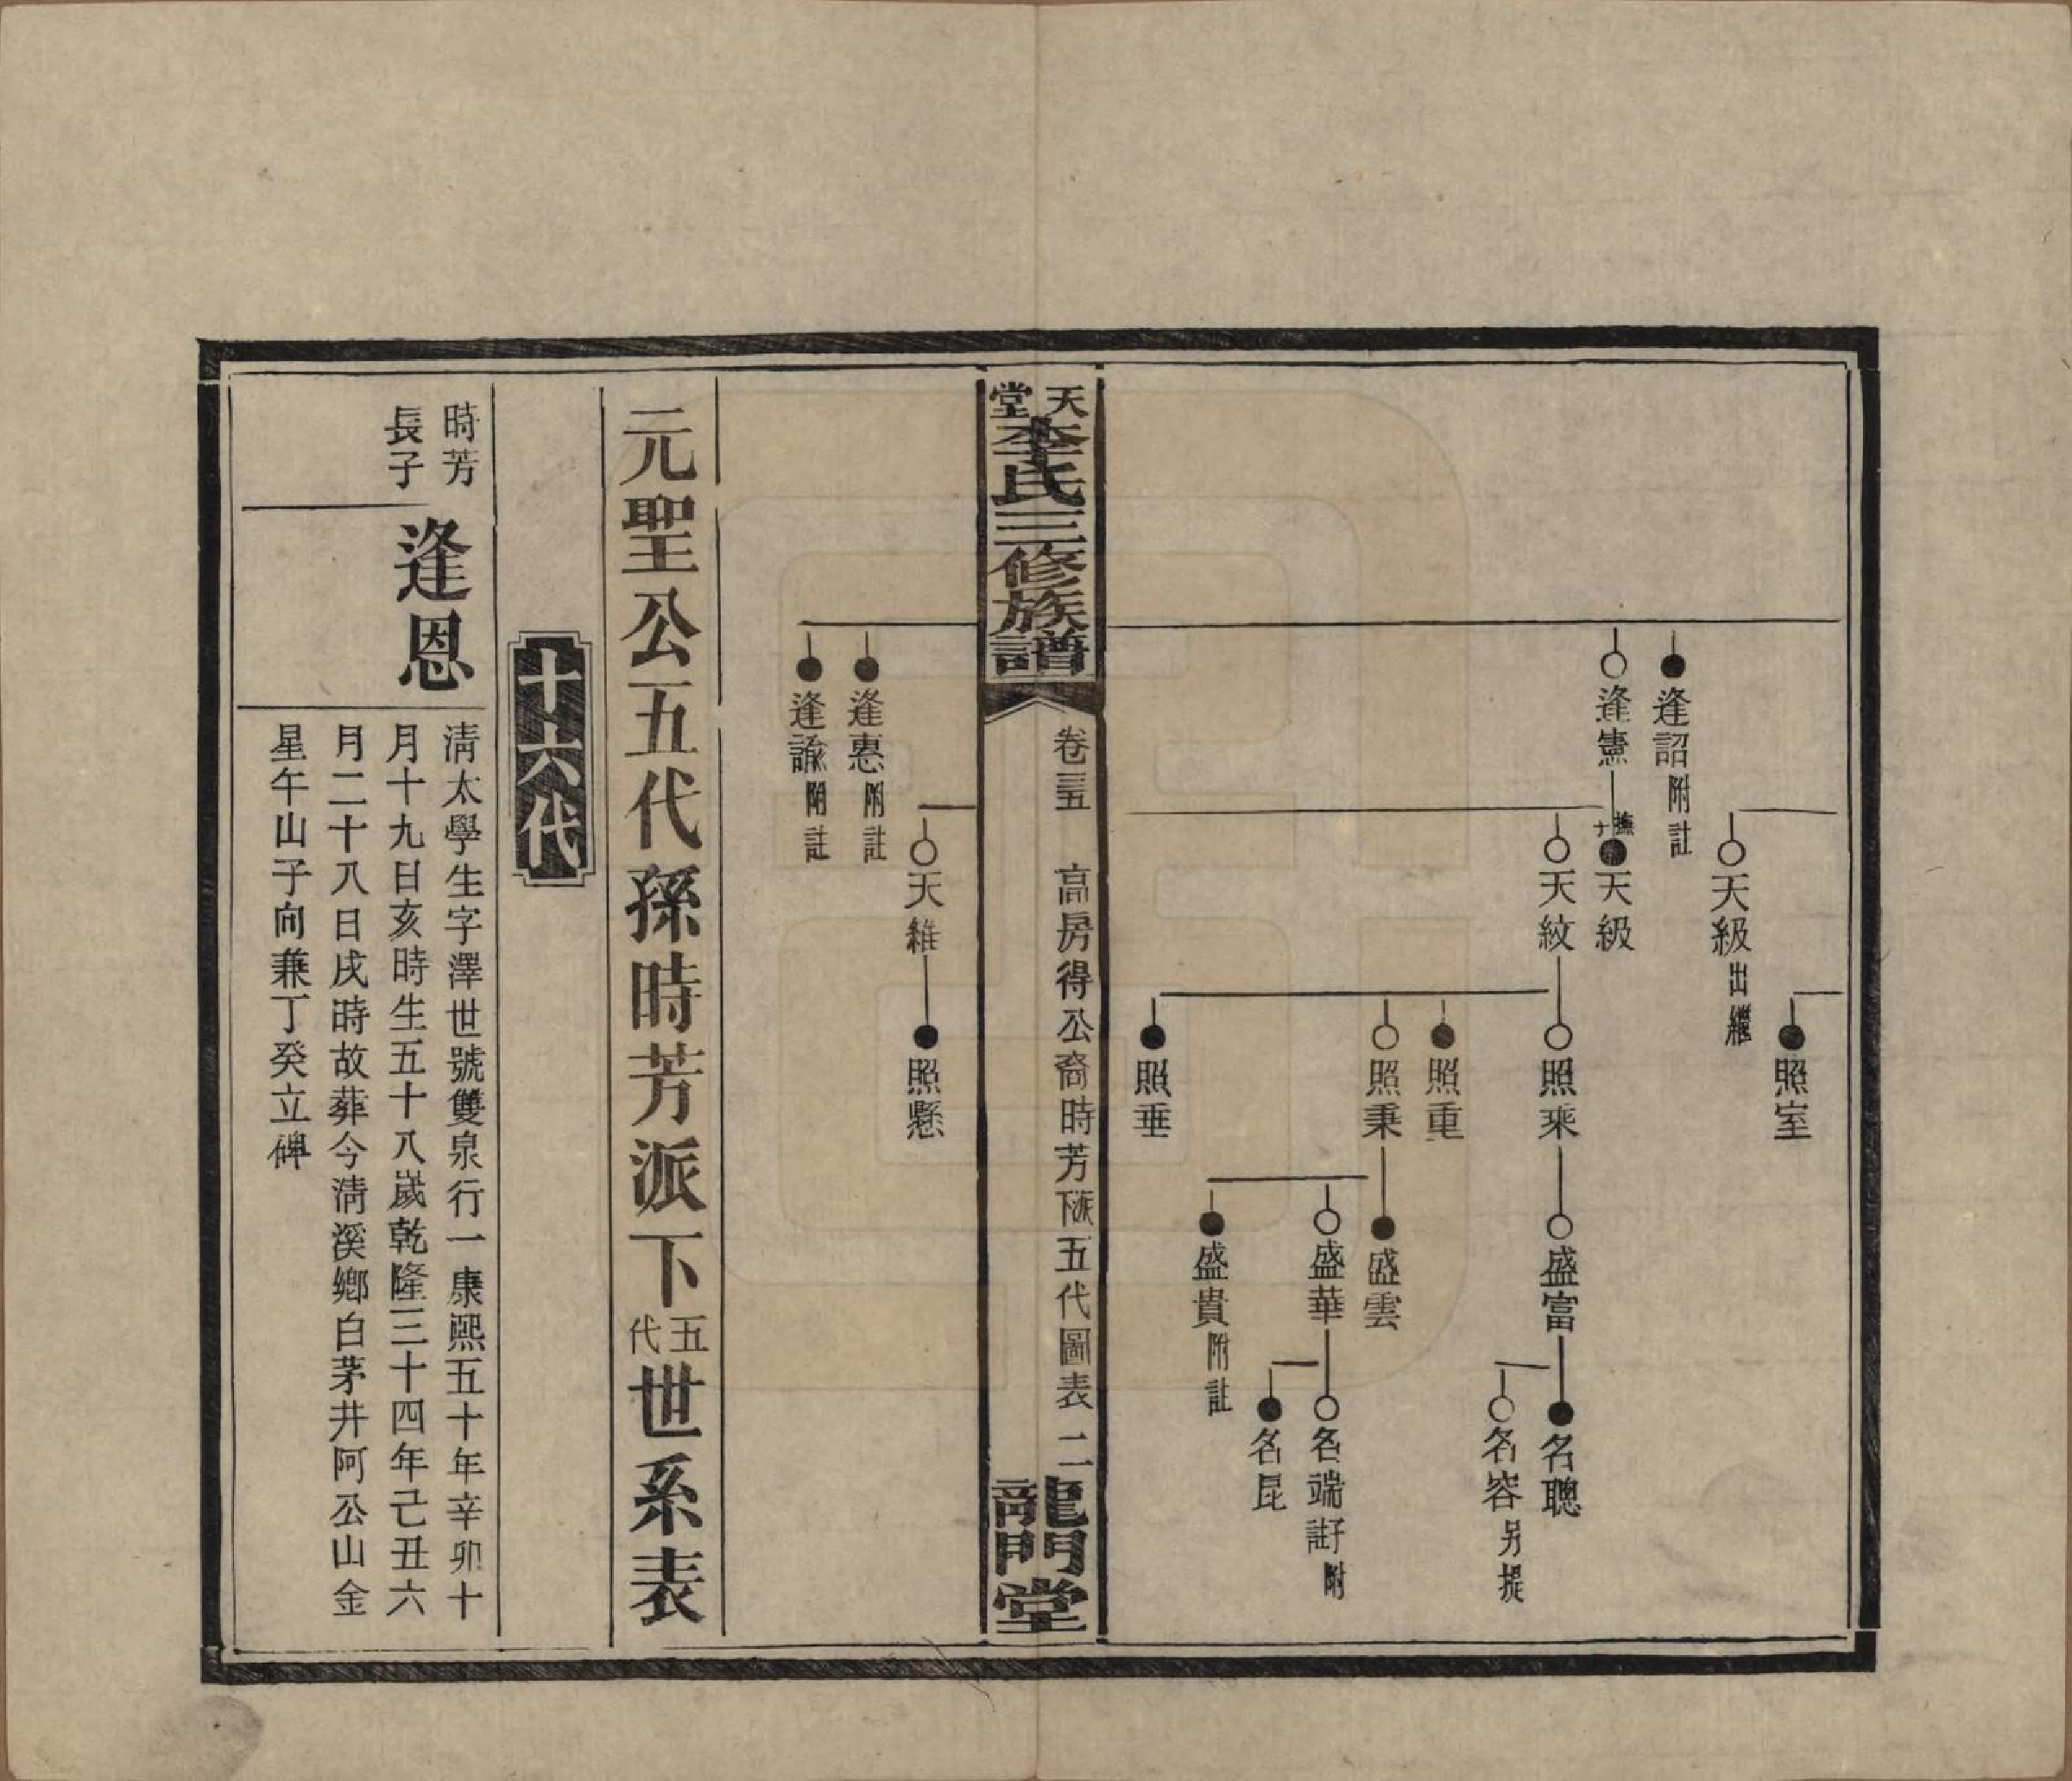 照室
天級出繼
逢詔附註
逢憲
撫子天級
天紋
照乘
盛富
名聰
名容另提
照重
照秉
盛雲
盛華
名端子附註
名昆
盛貴附註
照垂
天堂李氏三修族譜
卷三五
高房得公裔時芳派下五代圖表
二
龍門堂
天維
照懸
逢惠附註
逢諭附註
元聖公五代孫時芳派下五代世系表
十六代
時芳
長子
逢恩
清太學生字澤世號雙泉行一康熙五十年辛卯十
月十九日亥時生五十八歲乾隆三十四年己丑六
月二十八日戌時故葬今清溪鄉白茅井阿公山金
星午山子向兼丁癸立碑